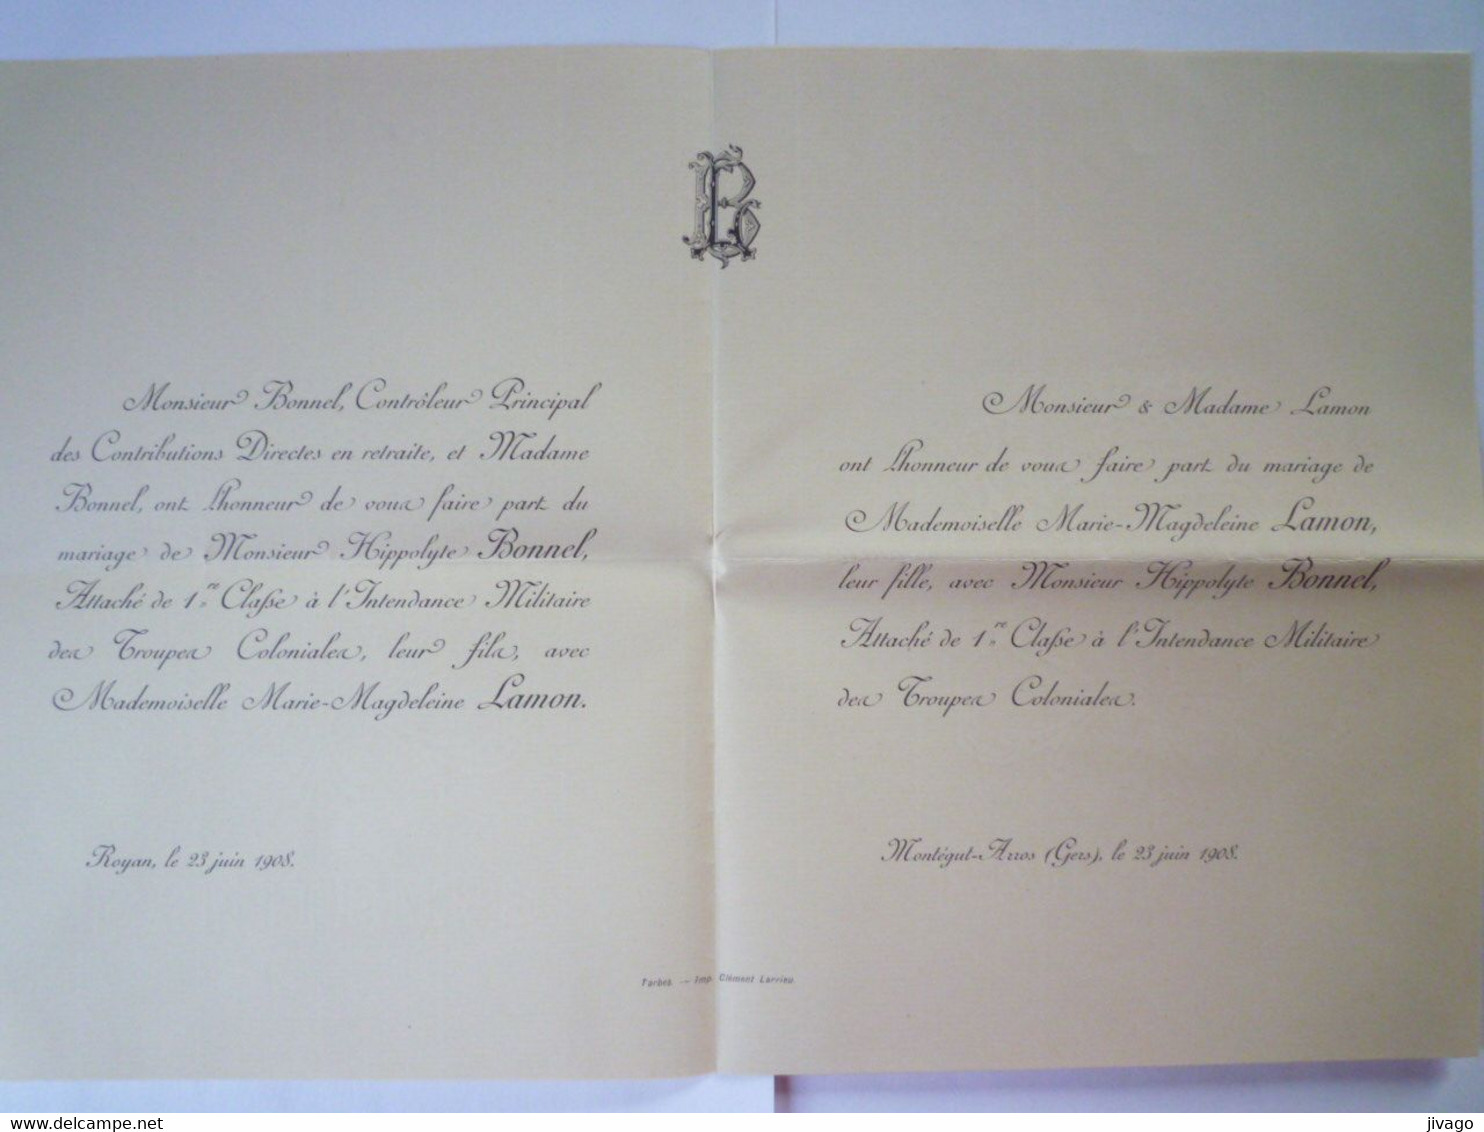 BL
Monsieur Bonnel, Contrôleur Principal
des Contributions Directes en retraite, et Madame
Bonnel, ont l'honneur de vous faire part du
mariage de Monsieur Hippolyte Bonnel,
Attaché de 1re Classe à l'Intendance Militaire
des Troupes Coloniales, leur fils, avec
Mademoiselle Marie-Magdeleine Lamon.
Royan, le 23 juin 1908.
Monsieur & Madame Lamon
ont l'honneur de vous faire part du mariage de
Mademoiselle Marie-Magdeleine Lamon,
leur fille, avec Monsieur Hippolyte Bonnel,
Attaché de 1re Classe à l'Intendance Militaire
des Troupes Coloniales.
Montégut-Arros (Gers), le 23 juin 1908.
Tarbes. — Imp. Clément Larrieu.
delcampe.net
jivago